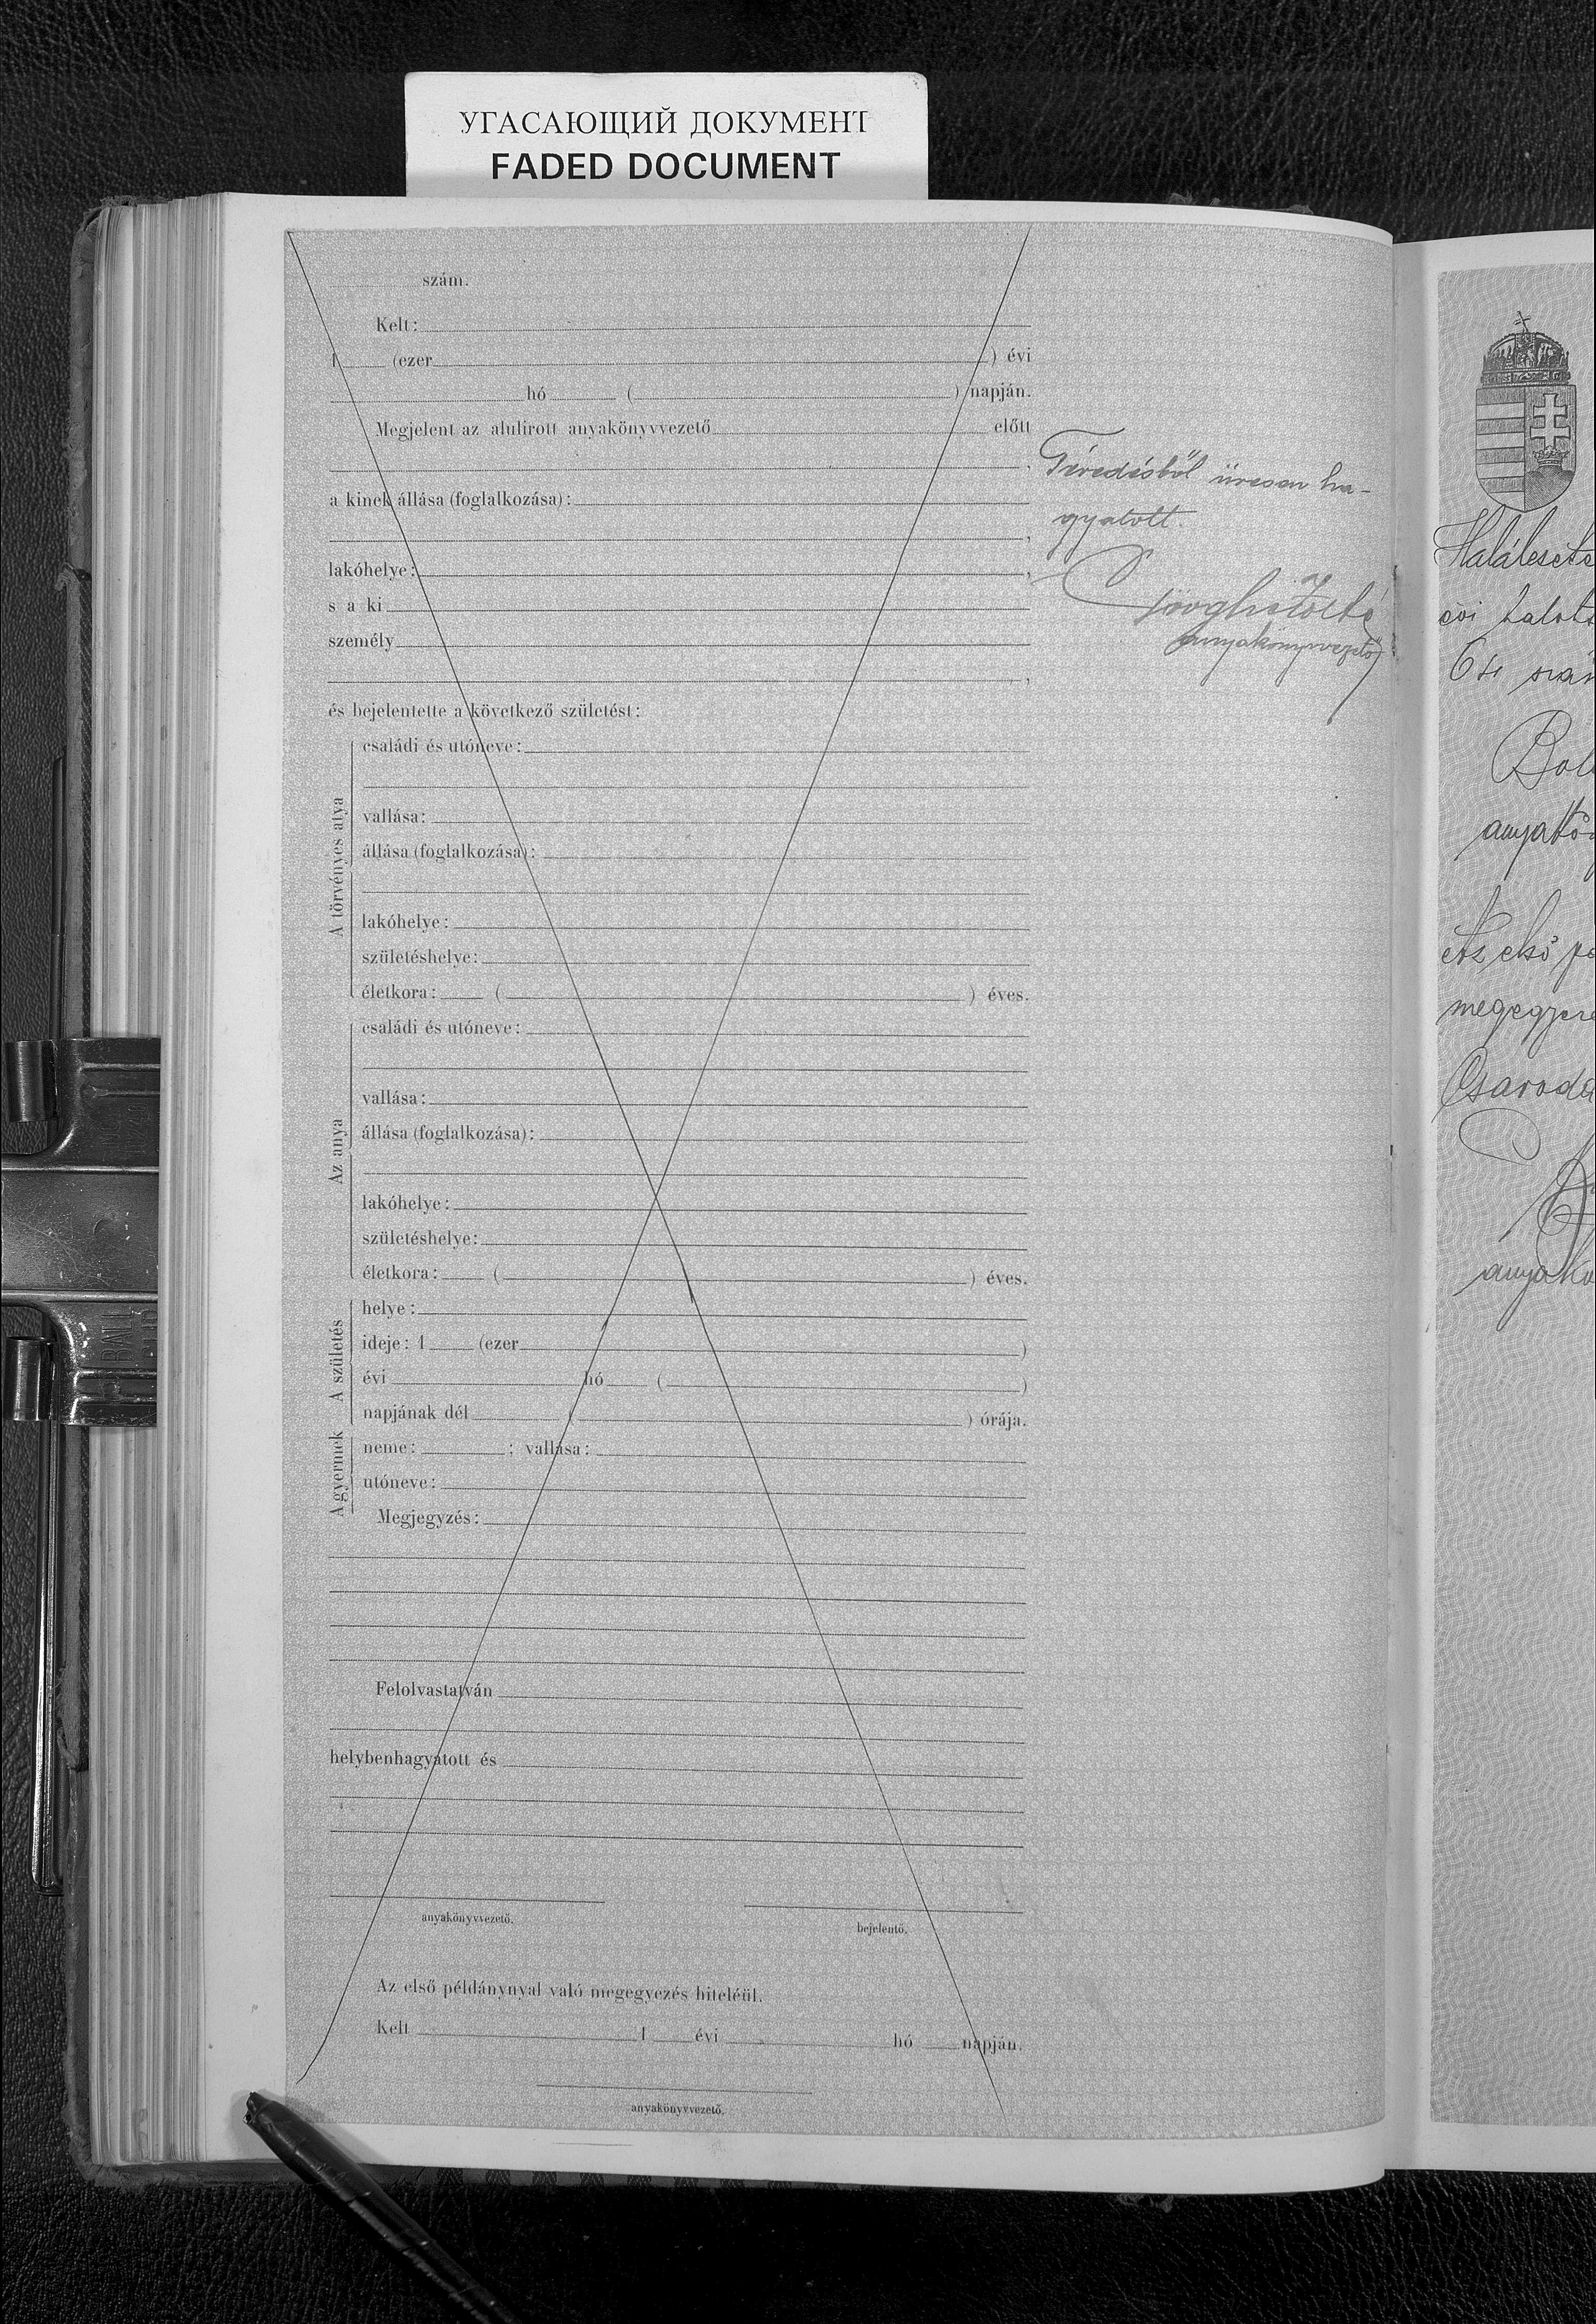 УГАСАЮЩИЙ ДОКУМЕНТ
FADED DOCUMENT
szám.
Kelt:
1 (ezer ) évi
hó ( ) napján.
Megjelent az alulirott anyakönyvvezető előtt
,
a kinek állása (foglalkozása):
,
lakóhelye: ,
s a ki
személy
,
és bejelentette a következő születést:
A törvényes atya
családi és utóneve:
vallása:
állása (foglalkozása):
lakóhelye:
születéshelye:
életkora: ( ) éves.
Az anya
családi és utóneve:
vallása:
állása (foglalkozása):
lakóhelye:
születéshelye:
életkora: ( ) éves.
A születés
helye:
ideje: 1 (ezer )
évi hó ( )
napjának dél ( ) órája.
A gyermek
neme: ; vallása:
utóneve:
Megjegyzés:
Felolvastatván
helybenhagyatott és
anyakönyvvezető.
bejelentő.
Az első példánynyal való megegyezés hiteléül.
Kelt 1 évi hó napján.
anyakönyvvezető.
Tévedésből üresen ha-
gyatott.
anyakönyvvezető
Halálesete
évi halott
64 szám
anyakön
Az első pé
megegyezé
Csaroda
anyakö